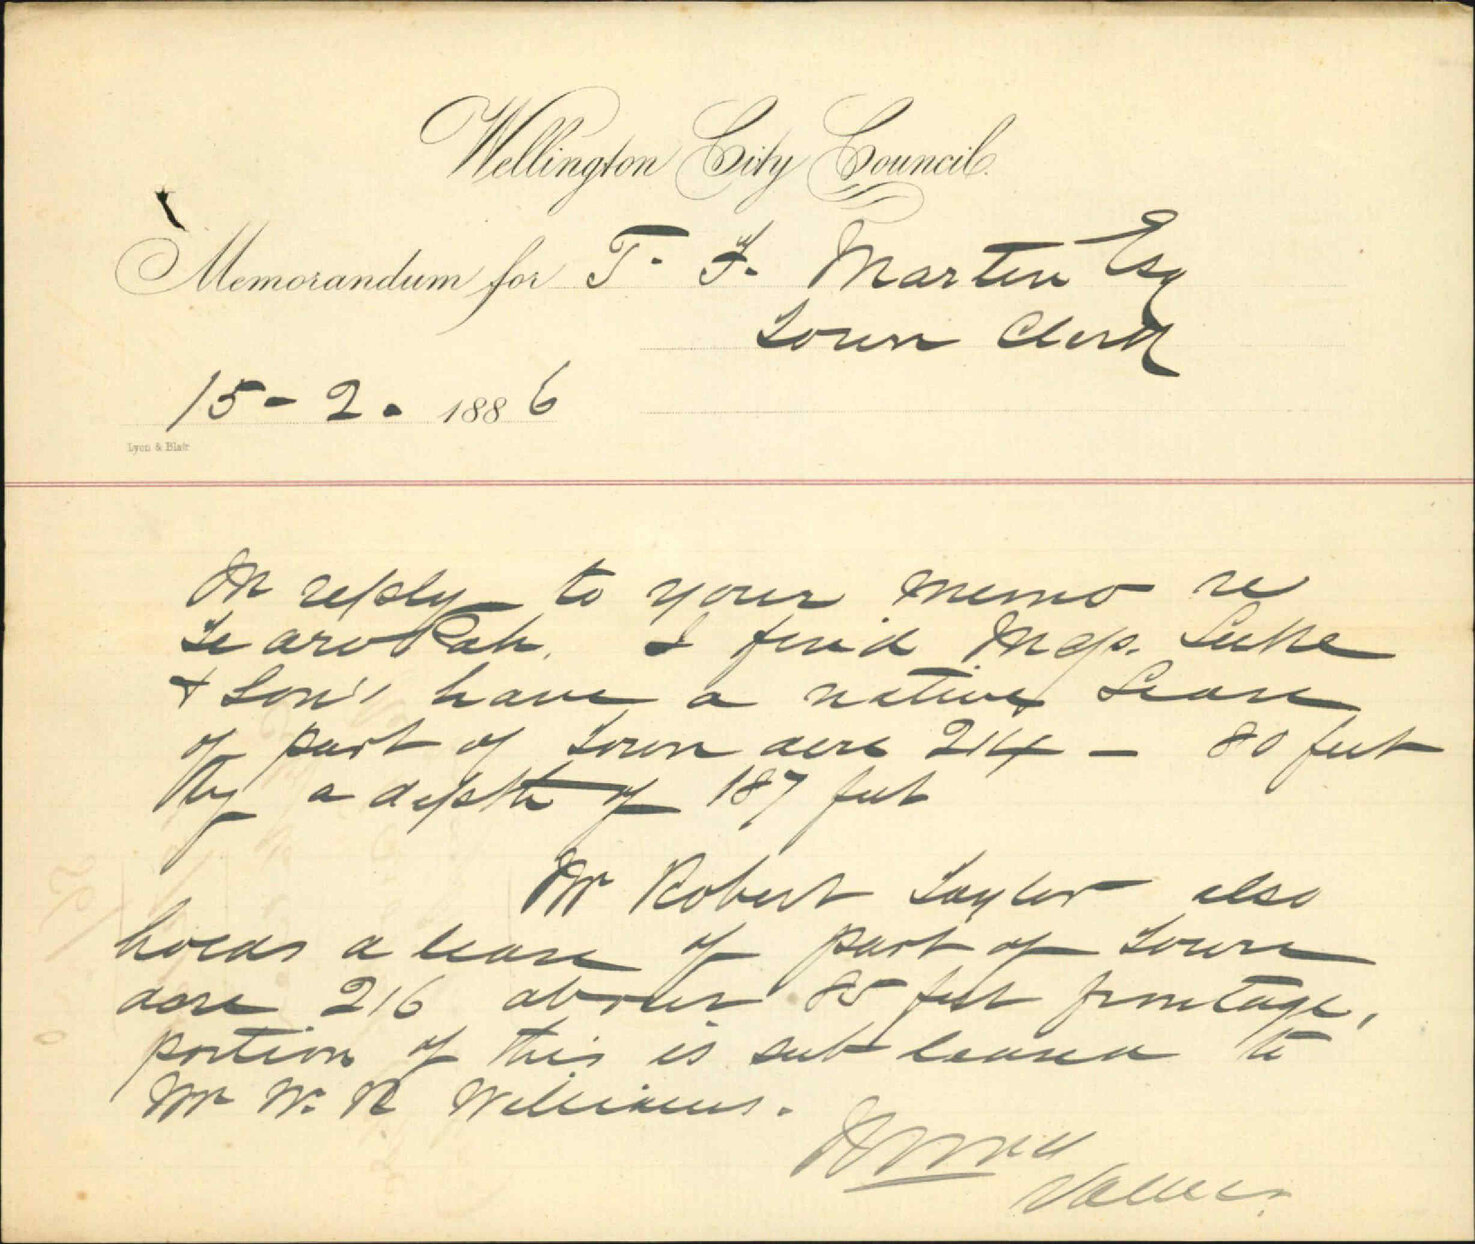 Wellington City Council.
Memorandum for T. F. Martin Esq
Town Clerk
15-2. 1886
Lyon & Blair
In reply to your memo re
Te aro Pah. I find Mess. Luke
& Son's have a native Lease
of part of Town acre 214 - 80 feet
by a depth of 187 feet
Mr Robert Taylor also
holds a lease of part of Town
acre 216 about 85 feet frontage,
portion of this is sub leased to
Mr W. R Williams.
Valuer.